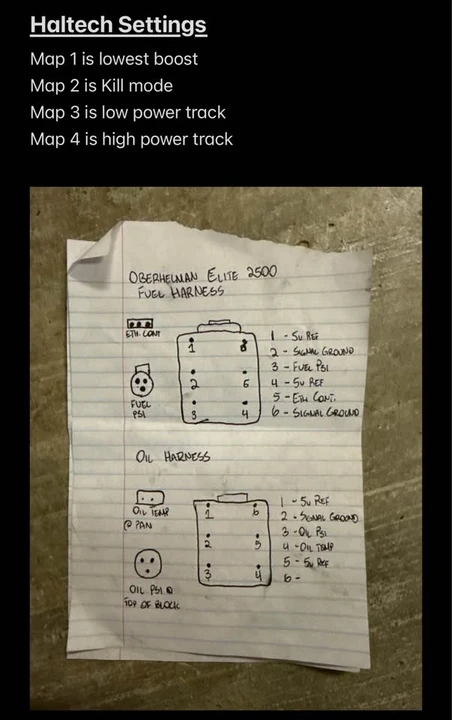 Haltech Settings
Map 1 is lowest boost
Map 2 is Kill mode
Map 3 is low power track
Map 4 is high power track
OBERHELMAN ELITE 2500
FUEL HARNESS
ETH. CONT
FUEL
PSI
1 8
2 6
3 4
1 - 5V REF
2 - SIGNAL GROUND
3 - FUEL PSI
4 - 5V REF
5 - ETH CONT.
6 - SIGNAL GROUND
OIL HARNESS
OIL TEMP
@ PAN
OIL PSI @
TOP OF BLOCK
1 6
2 5
3 4
1 - 5V REF
2 - SIGNAL GROUND
3 - OIL PSI
4 - OIL TEMP
5 - 5V REF
6 -